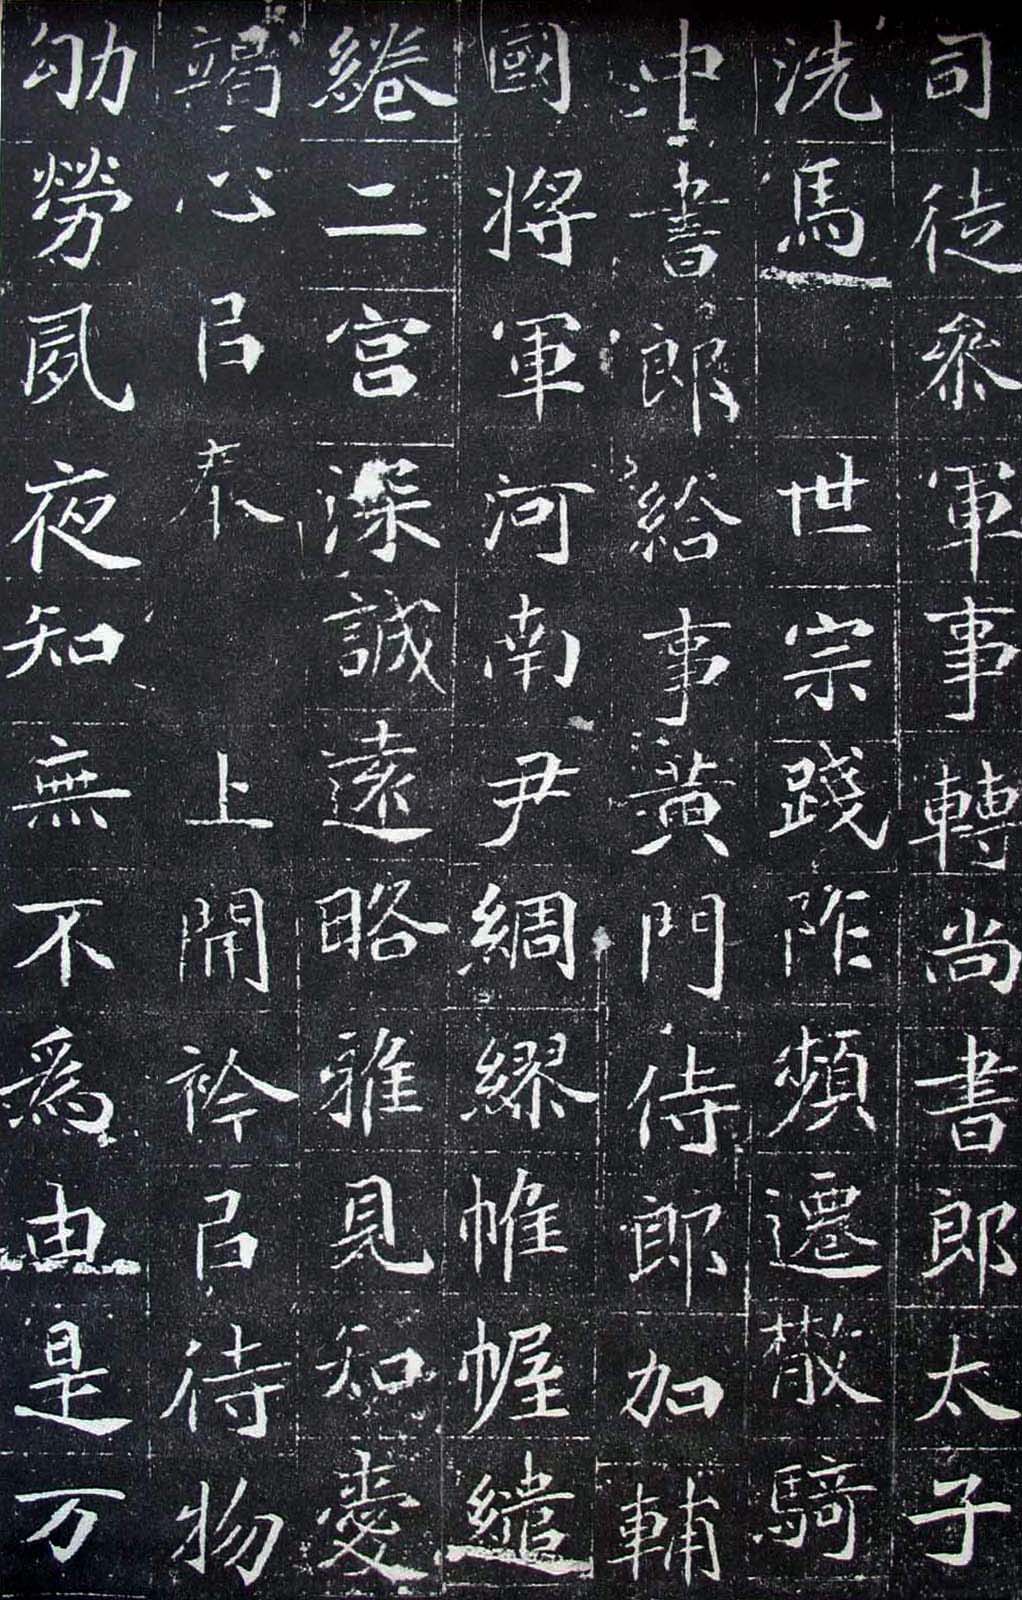 司徒參軍事轉尚書郎太子
洗馬 世宗踐阼頻遷散騎
中書郎給事黃門侍郎加輔
國將軍河南尹綢繆帷幄繾
綣二宮深誠遠略雅見知愛
竭心以奉 上開衿以待物
劬勞夙夜知無不爲由是万